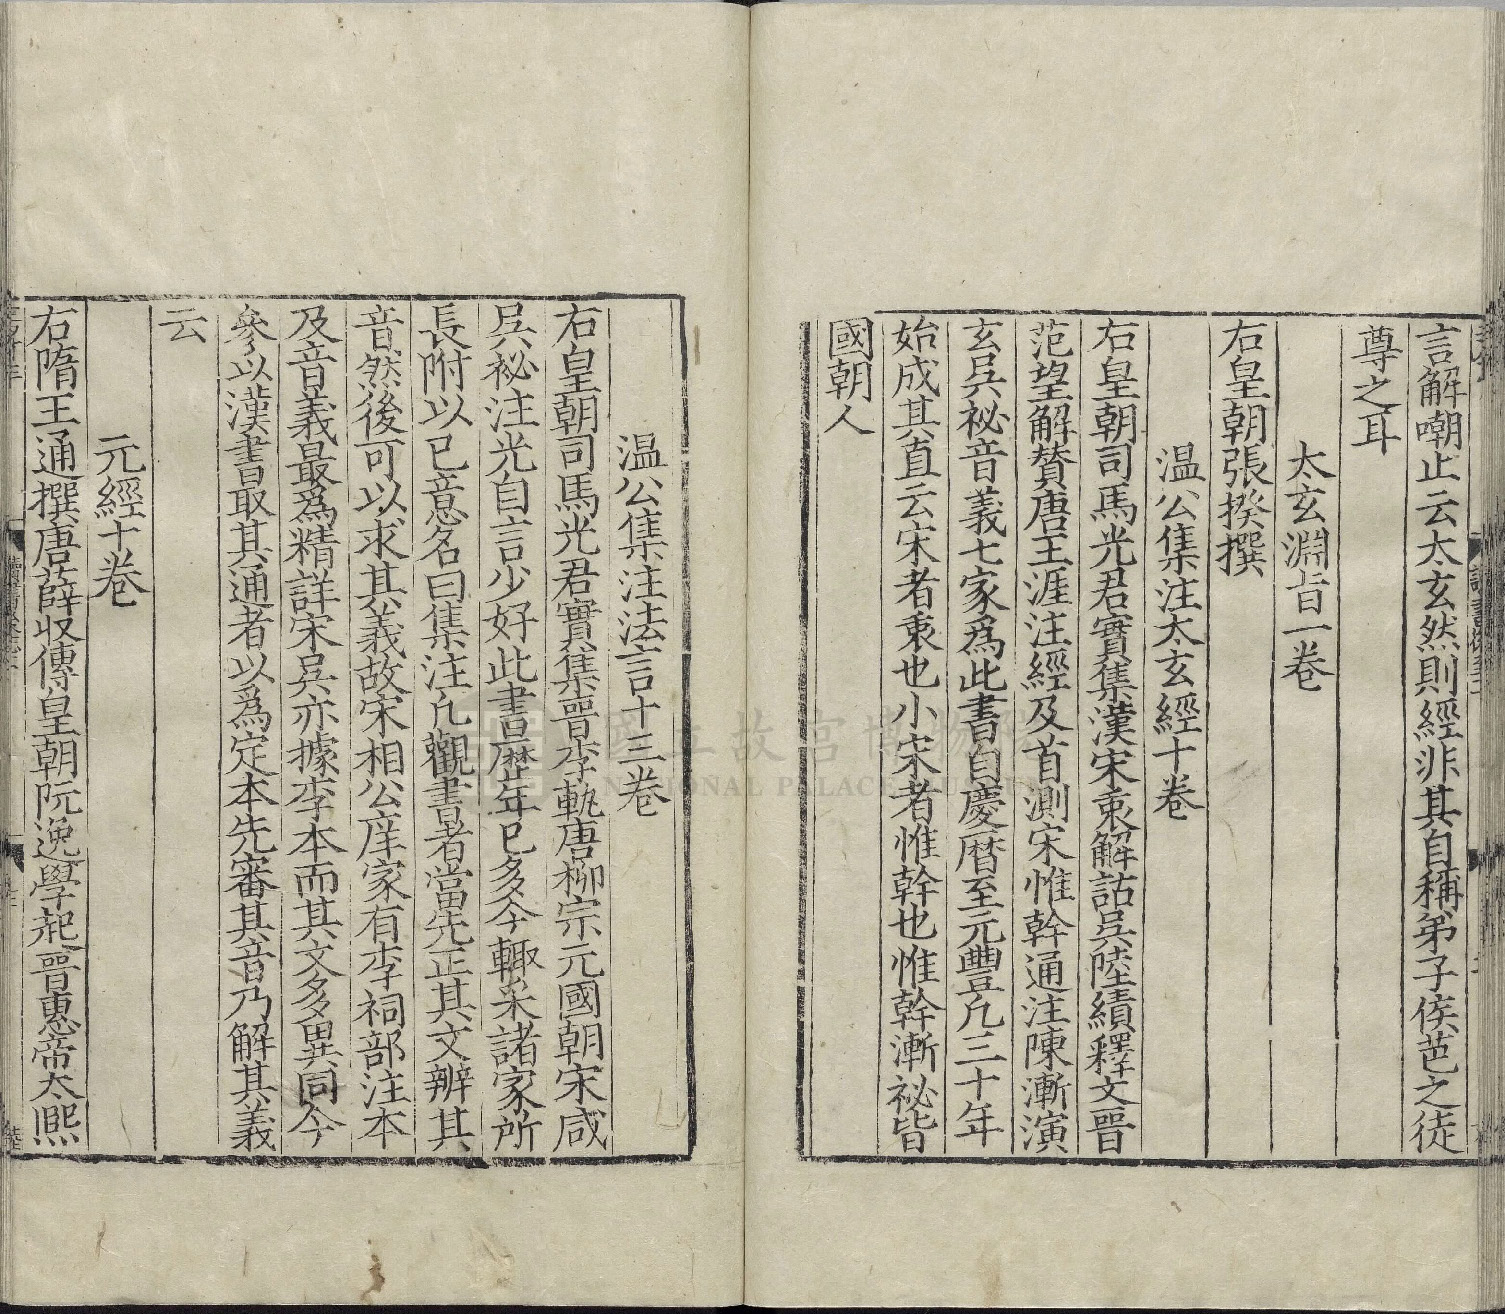 言解嘲止云太玄然則經非其自稱弟子侯芭之徒
尊之耳
太玄淵旨一卷
右皇朝張揆撰
温公集注太玄經十卷
右皇朝司馬光君實集漢宋衷解詁吳陸績釋文晉
范望解贊唐王涯注經及首測宋惟幹通注陳漸演
玄吳祕音義七家爲此書自慶曆至元豐凡三十年
始成其直云宋者衷也小宋者惟幹也惟幹漸祕皆
國朝人
温公集注法言十三卷
右皇朝司馬光君實集晉李軌唐柳宗元國朝宋咸
吳祕注光自言少好此書歷年已多今輒采諸家所
長附以已意名曰集注凡觀書者當先正其文辨其
音然後可以求其義故宋相公庠家有李祠部注本
及音義最爲精詳宋吳亦據李本而其文多異同今
參以漢書取其通者以爲定本先審其音乃解其義
云
元經十卷
右隋王通撰唐薛收傳皇朝阮逸學起晉惠帝太熙
國立故宮博物院
NATIONAL PALACE MUSEUM